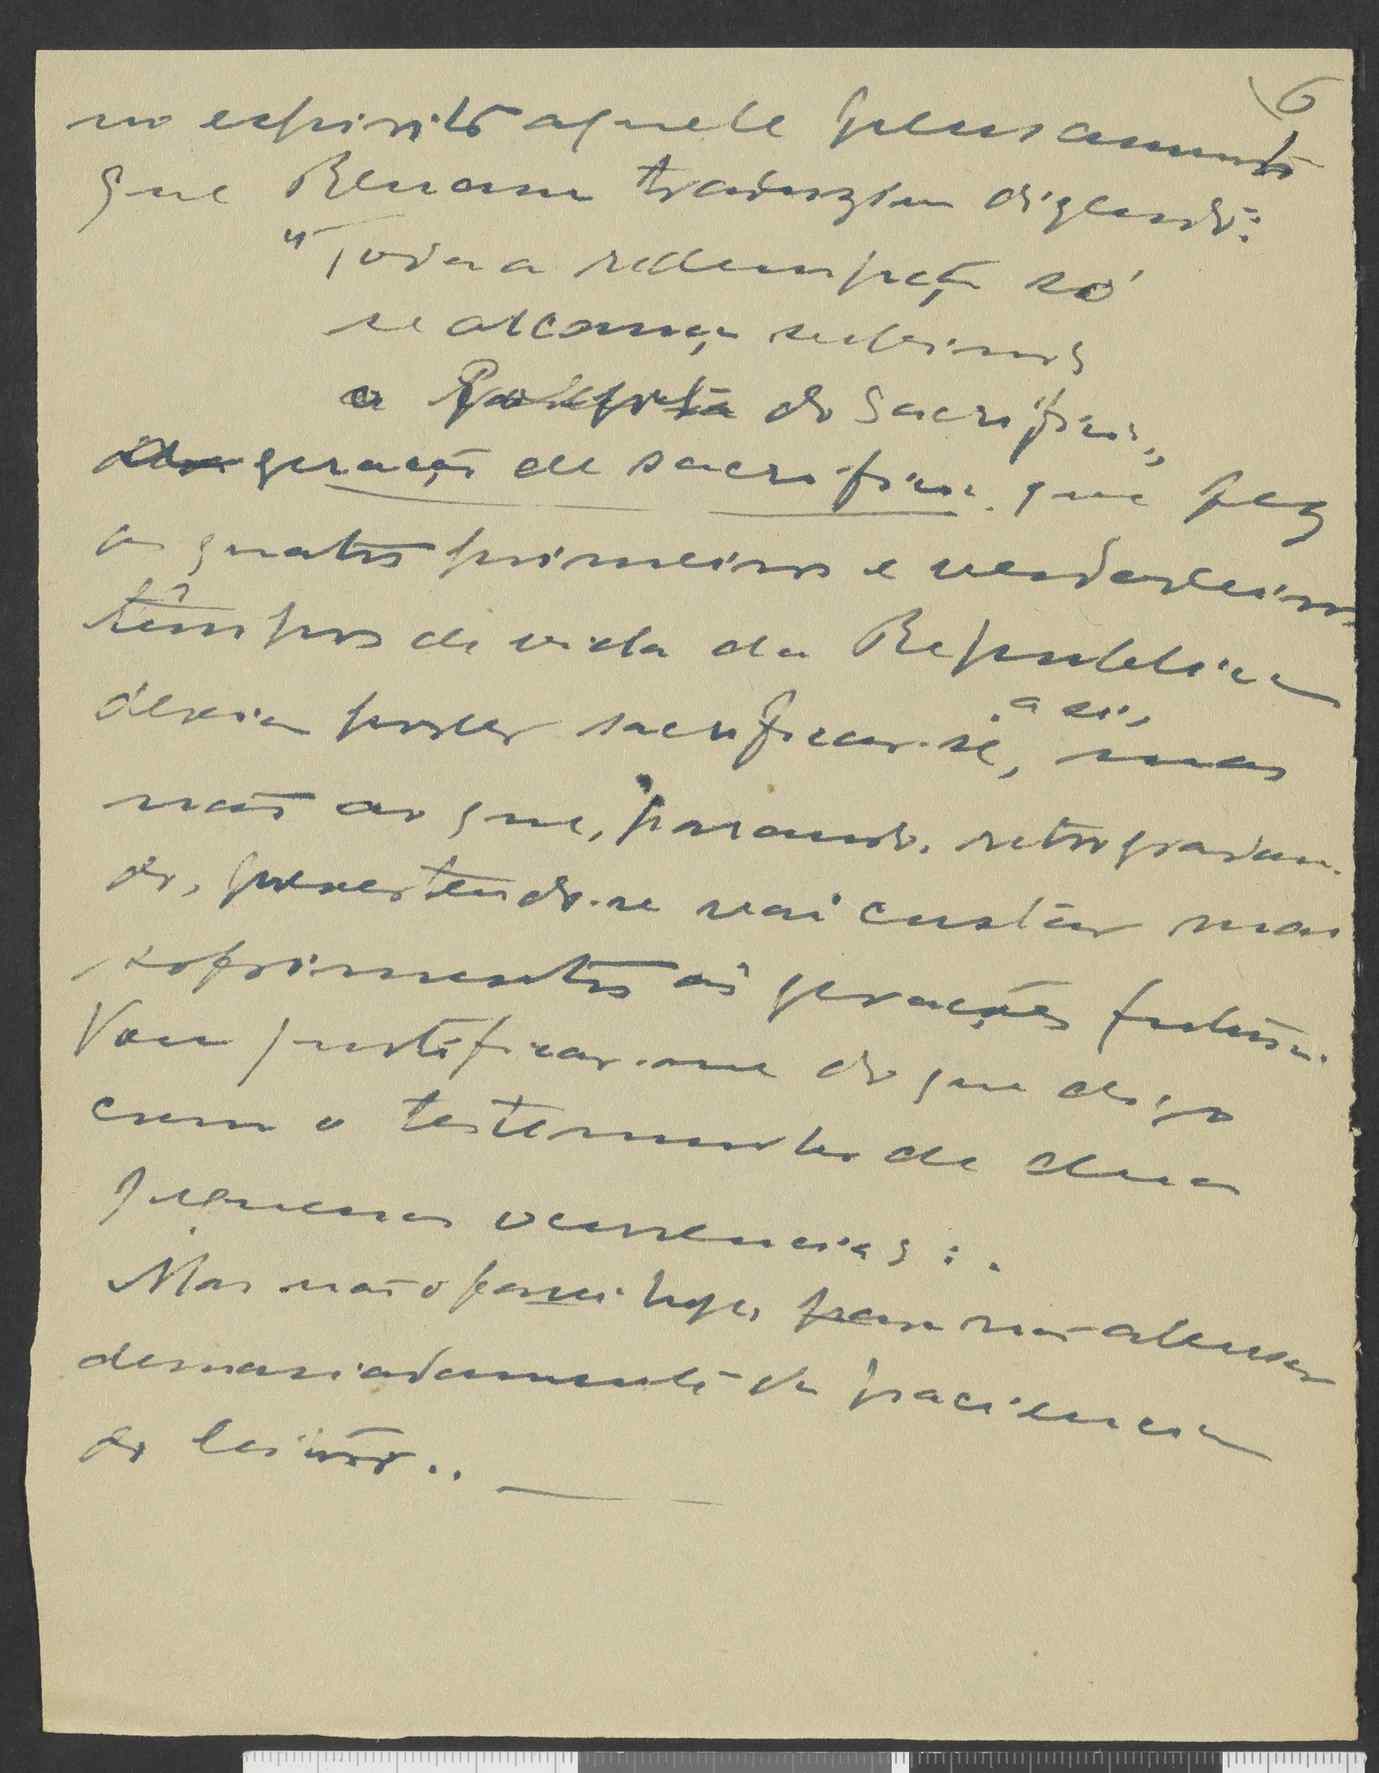 6
no espirito aquele pensamento
que Renan traduziu dizendo:
"Toda a redempção só
se alcança subindo
o do sacrificio"
geração de sacrificio que fez
os quatro primeiros e verdadeiros
têmpos de vida da Republica
devia poder sacrificar-se, a si,
não ao que, parando, retrogradan-
do, pervertendo-se vai custar mais
sofrimentos ás gerações futuras.
Vou justificar-me do que digo
com o testemunho de duas
pequenas ocurrencias:.
Mas não o farei hoje, para não abusar
demasiadamente da paciencia
do leitor..